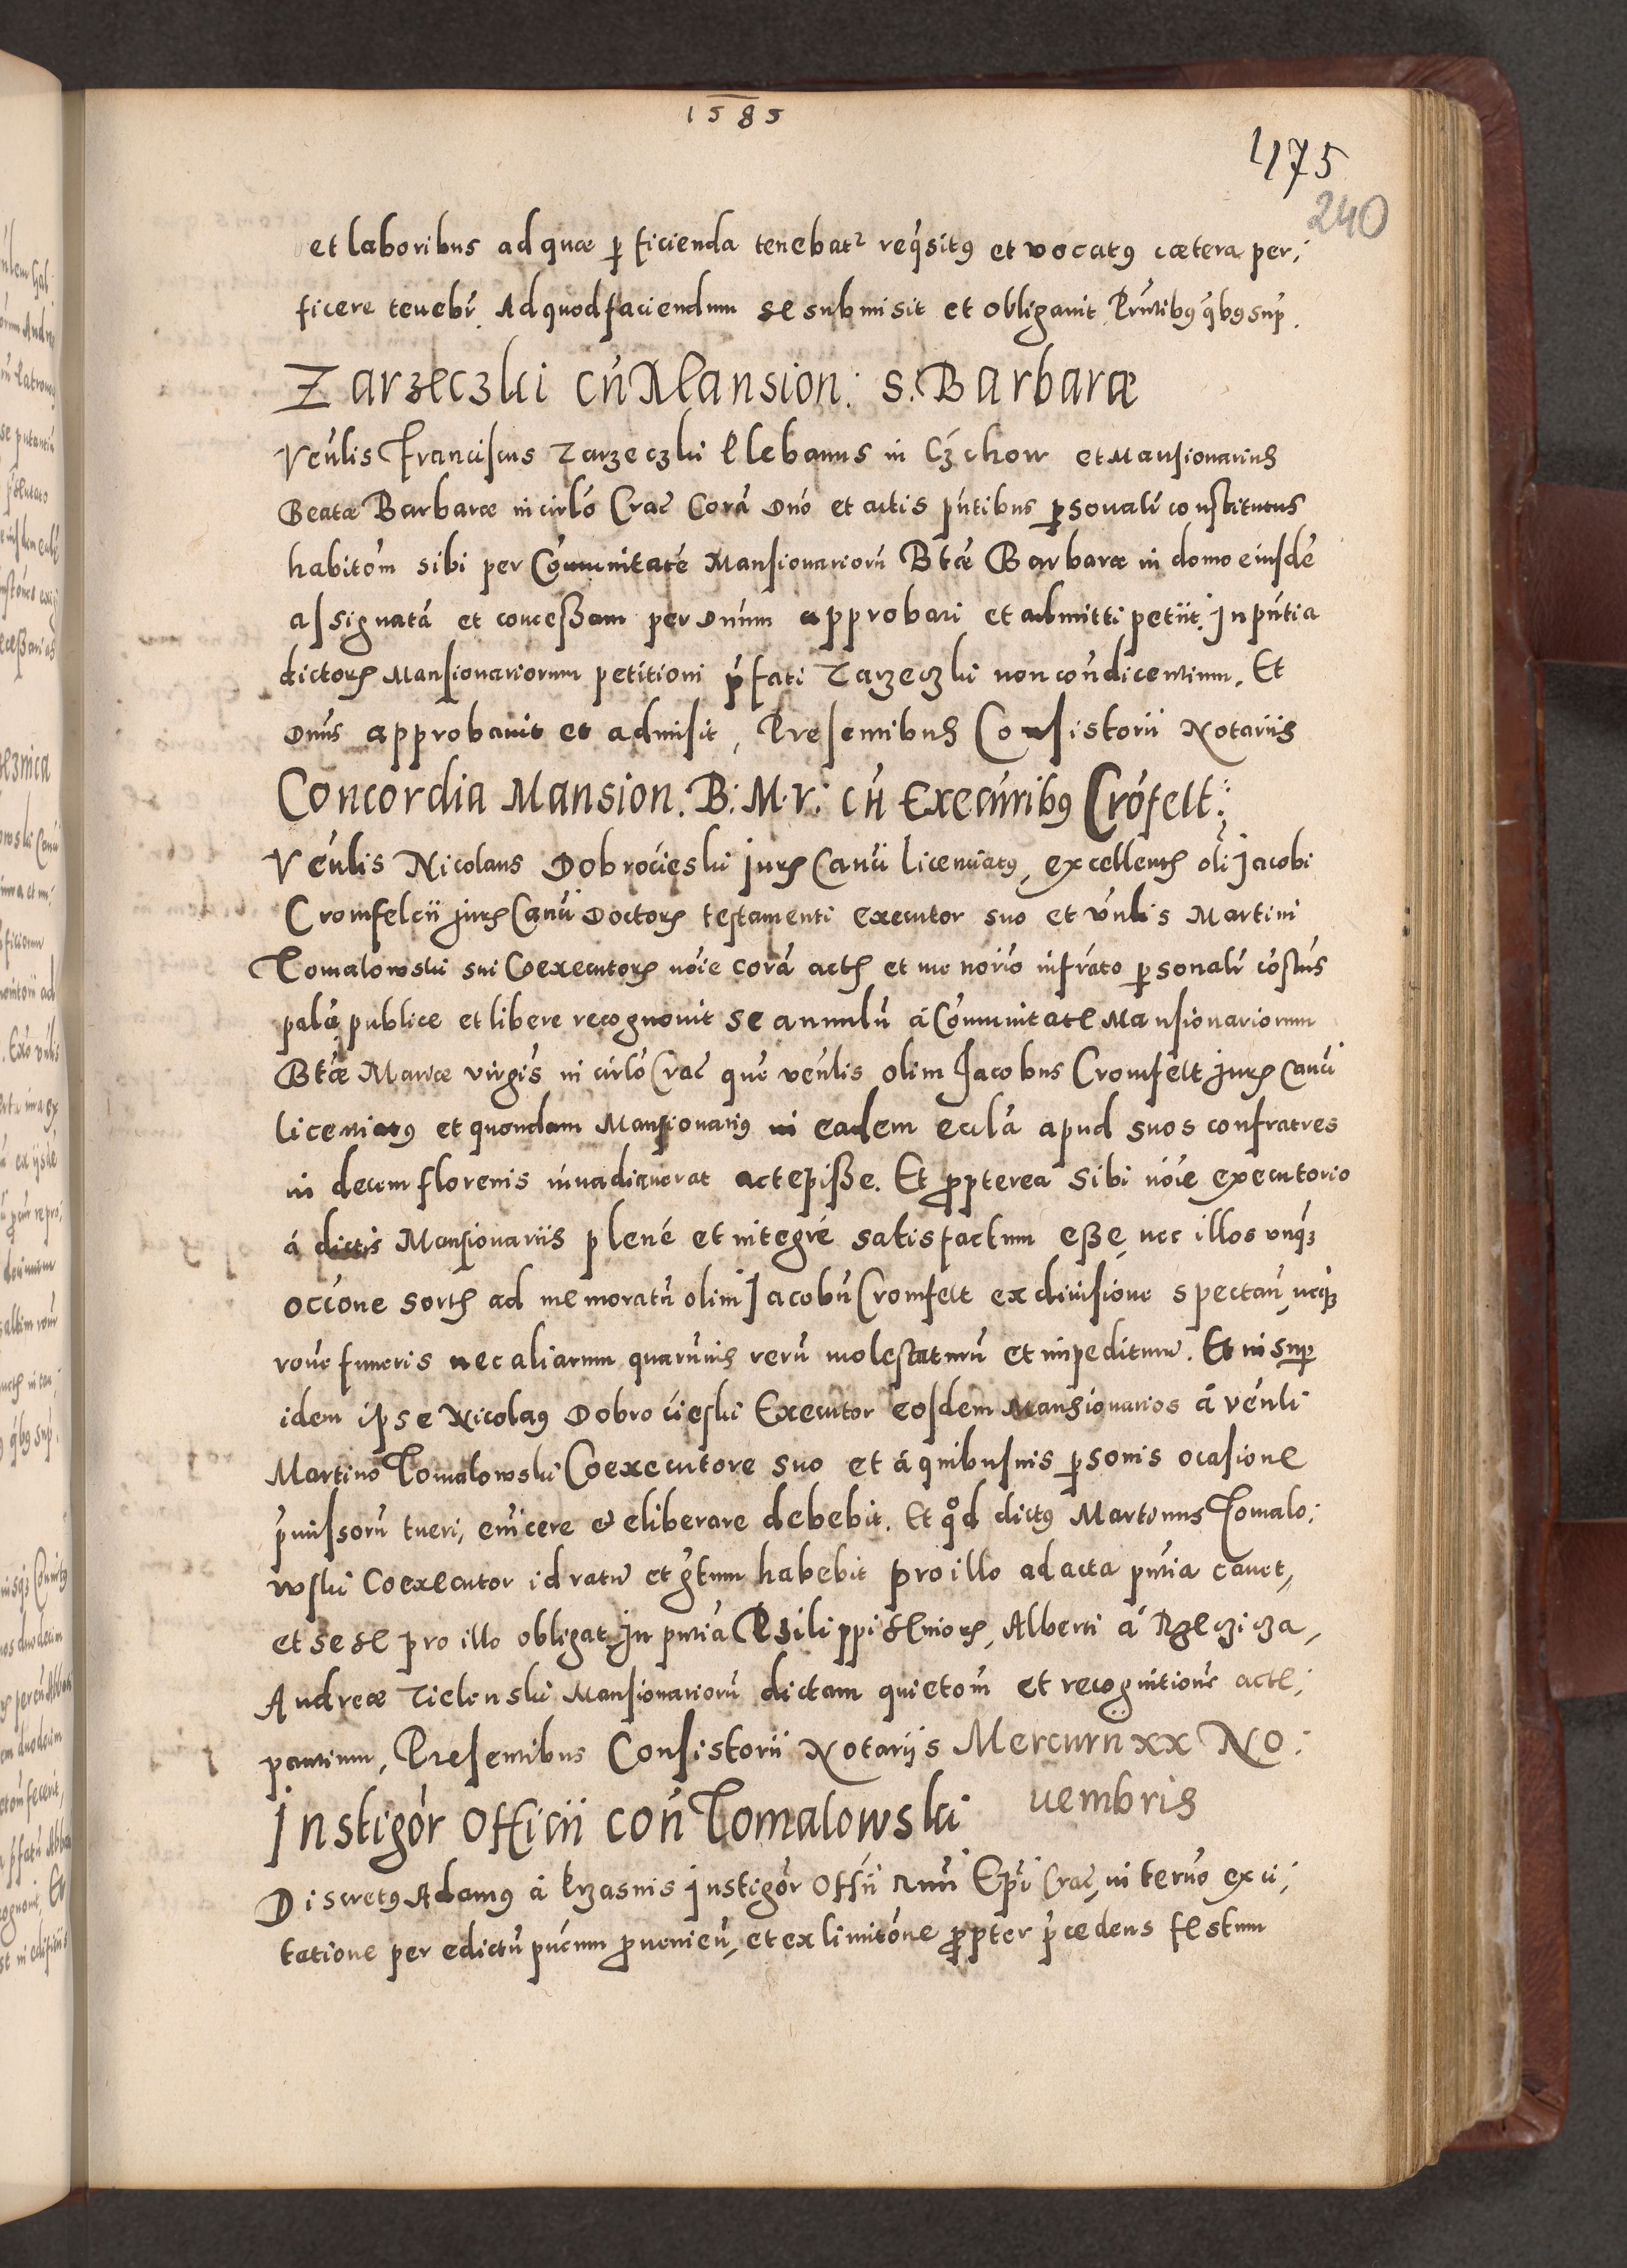 1585
1175
240
et laboribus ad quæ p ficienda tenebatr reqsitq et vocatq cætera per;
ficere tenebr. Ad quod faciendum se submisit et obligauit Prntibq qbq sup.
Zarzeczki cū Mansion: s. Barbaræ
Venlis Franciscus Zarzeczki Plebanus in Czchow et Mansionarius
Beatæ Barbaræ in cirlo Crac Corā Dno et actis pntibus psonalr constitutus
habitom sibi per Comunitatē Mansionariorū Btæ Barbaræ in domo eiusdē
assignatā et conceßam per Dnum approbari et admitti petiit. In pntia
dictorz Mansionariorum petitioni pfati Zarzeczki non condicentium. Et
Dnus approbauit et admisit, Presentibus Consistorii Notariis
Concordia Mansion. B: M. V: cū Execūribq Crōfelt:
Venlis Nicolaus Dobrocieski Juris Canci licentiatq, excellentis oli Jacobi
Cromfelcii juris Canci Doctoris testamenti executor suo et vnlis Martini
Tomalowski sui Coexecutoris noie corā actis et me norio infrato psonalr costus
palā publice et libere recognouit se annulū á Comunitate Mansionariorum
Btæ Mariæ virgis in cirlo Crac que venlis olim Jacobus Cromfelt juris Canci
licentiatq et quondam Mansionariq in eadem eccla apud suos confratres
in decem florenis inuadiauerat accepiße. Et ppterea sibi noie executorio
á dictis Mansionariis plené et integré satisfactum eße, nec illos vnq
occone sortis ad memoratū olim Jacobū Cromfelt ex diuisione spectan, neq
rone funeris nec aliarum quaruuis rerū molestaturū et impeditur. Et insup
idem ipse Nicolaq Dobrocieski Executor eosdem Mansionarios á venli
Martino Tomalowski Coexecutore suo et á quibusuis psonis ocasione
pmissorū tueri, euicere et eliberare debebit. Et qod dictq Martinus Tomalo;
wski Coexecutor id ratū et gtum habebit pro illo ad acta pntia cauet,
et sese pro illo obligat. In pntia Philippi senioris, Alberti á Rzeczicza,
Andreæ Zielenski Mansionariorū dictam quietom et recognitione acce;
pantium, Presentibus Consistorii Notarijs Mercurii xx No:
uembris
Instigor Officii con Tomalowski
Discretq Adamq á Krzasnis Instigor Offii Rmi Epi Crac, in terno ex ci;
tatione per edictū pucum prouenien, et ex limitone ppter pcedens festum